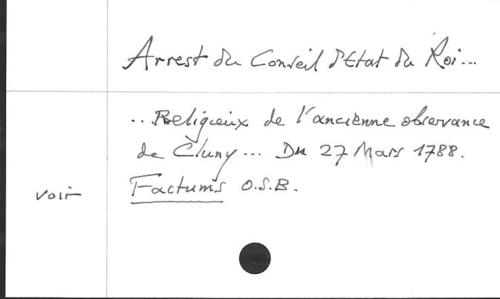 Arrest du Conseil d'Etat du Roi...
.. Religieux de l'ancienne observance
de Cluny... Du 27 Mars 1788.
voir Factums O.S.B.